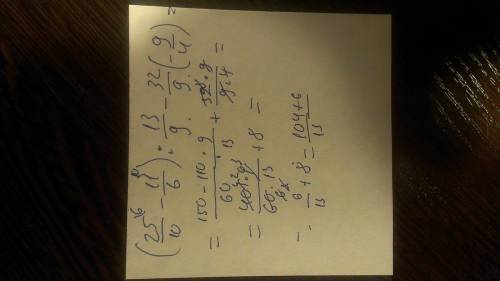 (25/10 - 11/6) : 13/9 - 32/9 · (-9/4) =
= (150 - 110 · 9)/(60 · 13) + (32 · 9)/(9 · 4) =
= (40 · 9)/(60 · 13) + 8 =
= 6/13 + 8 = (104+6)/13